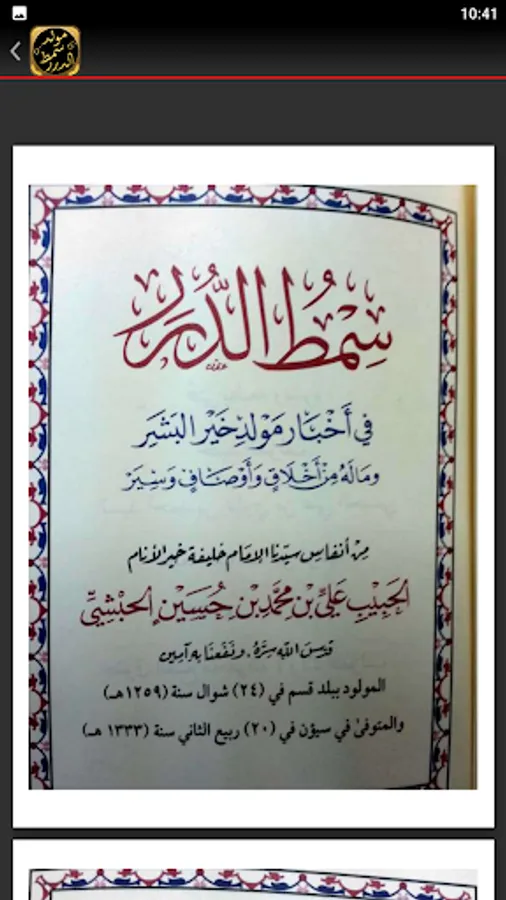 10:41
مولد
سمط
الدرر
سِمْطُ الدُّرَرِ
فِي أَخْبَارِ مَوْلِدِ خَيْرِ البَشَرِ
وَمَا لَهُ مِنْ أَخْلَاقٍ وَأَوْصَافٍ وَسِيَرْ
مِنْ أنفاس سيّدنا الإمام خليفة خير الأنام
الحَبِيْبِ عَلِيِّ بْنِ مُحَمَّدِ بْنِ حُسَيْنِ الحَبْشِيّ
قدّس الله سرّهُ، ونفعنا به آمين
المولود ببلد قسم في (٢٤) شوال سنة (١٢٥٩هـ)
والمتوفىٰ في سيؤن في (٢٠) ربيع الثاني سنة (١٣٣٣ هـ)